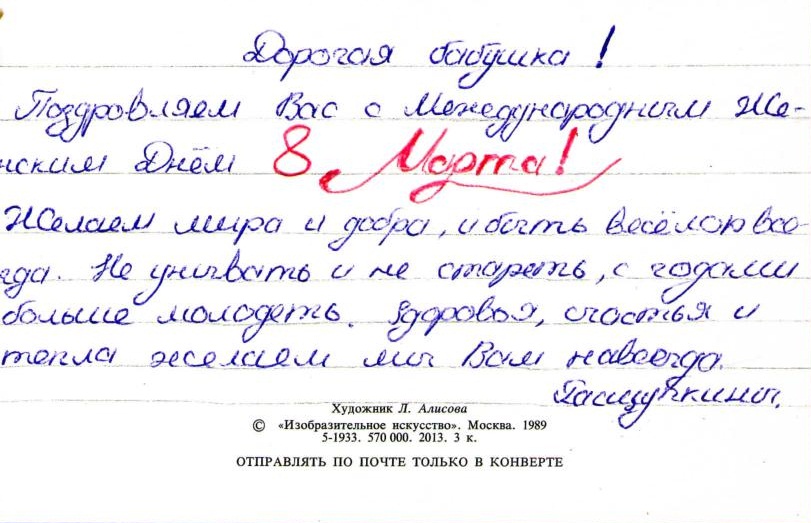 Дорогая бабушка!
Поздравляем Вас с Международным Же-
нским Днём 8 Марта!
Желаем мира и добра, и быть весёлою все-
гда. Не унывать и не стареть, с годами
больше молодеть. Здоровья, счастья и
тепла желаем мы Вам навсегда.
Художник Л. Алисова
© «Изобразительное искусство». Москва. 1989
5-1933. 570 000. 2013. 3 к.
ОТПРАВЛЯТЬ ПО ПОЧТЕ ТОЛЬКО В КОНВЕРТЕ